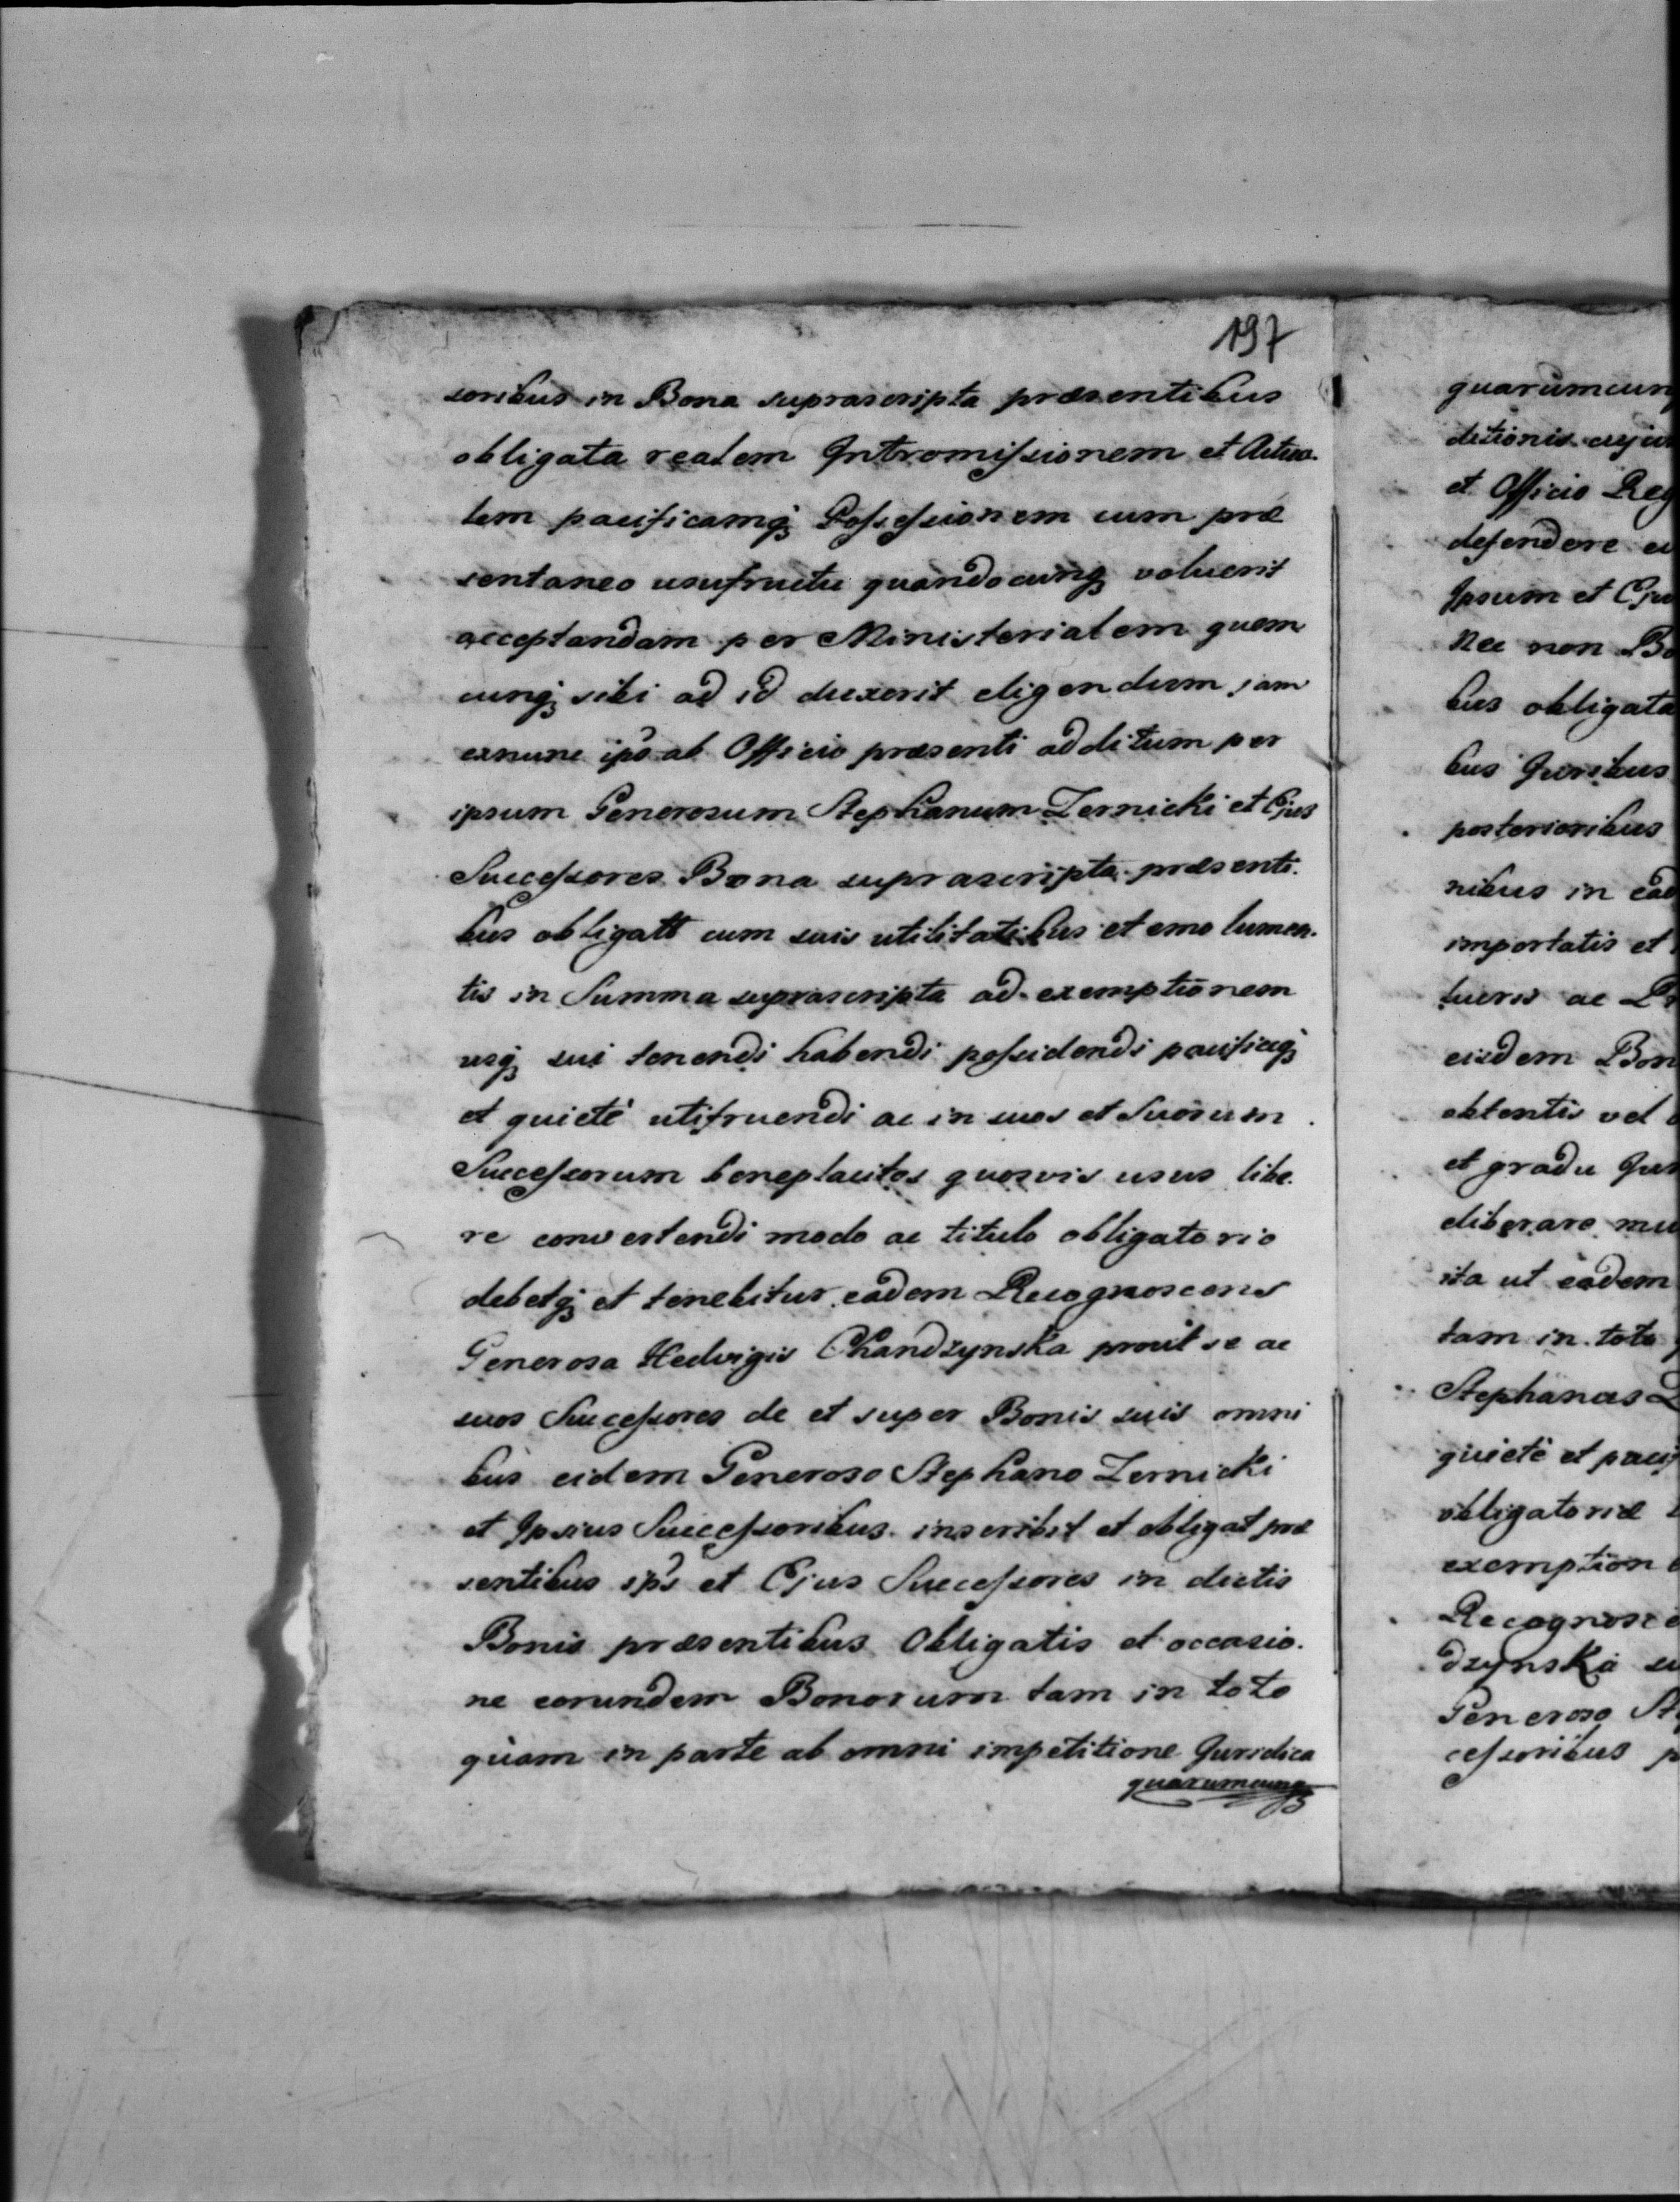 197
soribus in Bona suprascripta præsentibus
obligata realem Intromissionem et Actua-
lem pacificamq; Possessionem cum præ
sentaneo usufructu quandocunq; voluerit
acceptandam per Ministerialem quem
cunq; sibi ad id duxerit eligendum jam
exnunc ips̃o ab Officio præsenti additum per
ipsum Generosum Stephanum Zernicki et Ejus
Successores Bona suprascripta præsenti-
bus obligatt cum suis utilitatibus et emolumen-
tis in Summa suprascripta ad exemptionem
usq; sui tenendi habendi possidendi pacificeq;
et quietè utifruendi ac in suos et Suorum
Successorum beneplacitos quosvis usus libe-
re convertendi modo ac titulo obligatorio
debetq; et tenebitur eadem Recognoscens
Generosa Hedvigis Chandzynska prout se ac
suos Successores de et super Bonis suis omni
bus eidem Generoso Stephano Zernicki
et Ipsius Successoribus inscribit et obligat præ
sentibus ips̃ et Ejus Successores in dictis
Bonis præsentibus Obligatis et occasio-
ne eorundem Bonorum tam in toto
quam in parte ab omni impetitione Juridica
quarumcunq;
quarumcunq
ditionis cujus
et Officio Reg
defendere ev
Ipsum et Eju
Nec non Bo
bus obligata
bus Juribus
posterioribus
nibus in ead
importatis et
lucris ac
eisdem Bon
obtentis vel
et gradu Jur
eliberare
ita ut eadem
tam in toto
Stephanus
quietè et paci
obligatoriæ
exemption
Recognosce
dzynska
Generoso St
cessoribus p